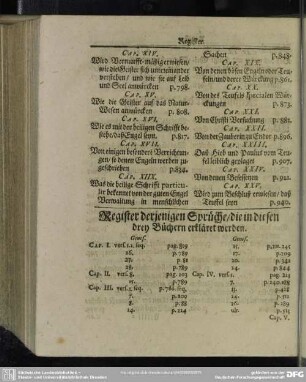 Register.
Cap. XIV.
Wird Vernunfft-mäßig erwiesen/
wie die Geister sich untereinander
verstehen/ und wie sie auf Leib
und Seel anwürcken p. 798.
Cap. XV.
Wie die Geister auf das Natur-
Wesen anwürcken p. 808.
Cap. XVI.
Wie es mit der heiligen Schriffte be-
stehe/ daß Engel seyn. p. 817.
Cap. XVII.
Von einigen besondern Verrichtun-
gen/ so denen Engeln werden zu-
geschrieben p. 834.
Cap. XIIX.
Was die heilige Schrifft particu-
lir bekennet von der guten Engel
Verwaltung in menschlichen
Sachen p. 848.
Cap. XIX.
Von denen bösen Engeln oder Teu-
feln und derer Würckung p. 861.
Cap. XX.
Von des Teufels specialen Wür-
ckungen p. 873.
Cap. XXI.
Von Christi Versuchung p. 882.
Cap. XXII.
Von der Zauberin zu Endor p. 896.
Cap. XXIII.
Daß Hiob und Paulus vom Teu-
fel leiblich geplaget p. 907.
Cap. XXIV.
Von denen Besessenen p. 922.
Cap. XXV.
Wird zum Beschluß erwiesen/ daß
Teufel seyn p. 940.
Register derjenigen Sprüche/ die in diesen
drey Büchern erkläret werden.
Genes.
Cap. I. vers. 1. 2. seq. pag. 819
26. p. 789
27. p. 81
28. p. 789
Cap. II. vers. 8. pag. 203
15. p. 789
Cap. III. vers. 1. seq. p. 786. seq.
7. p. 209
8. p. 88
14. p. 214
Genes.
15. p. 20. 141
17. p. 209
20. p. 142
24. p. 844
Cap. IV. vers. 1. p. 214
Cap. V.